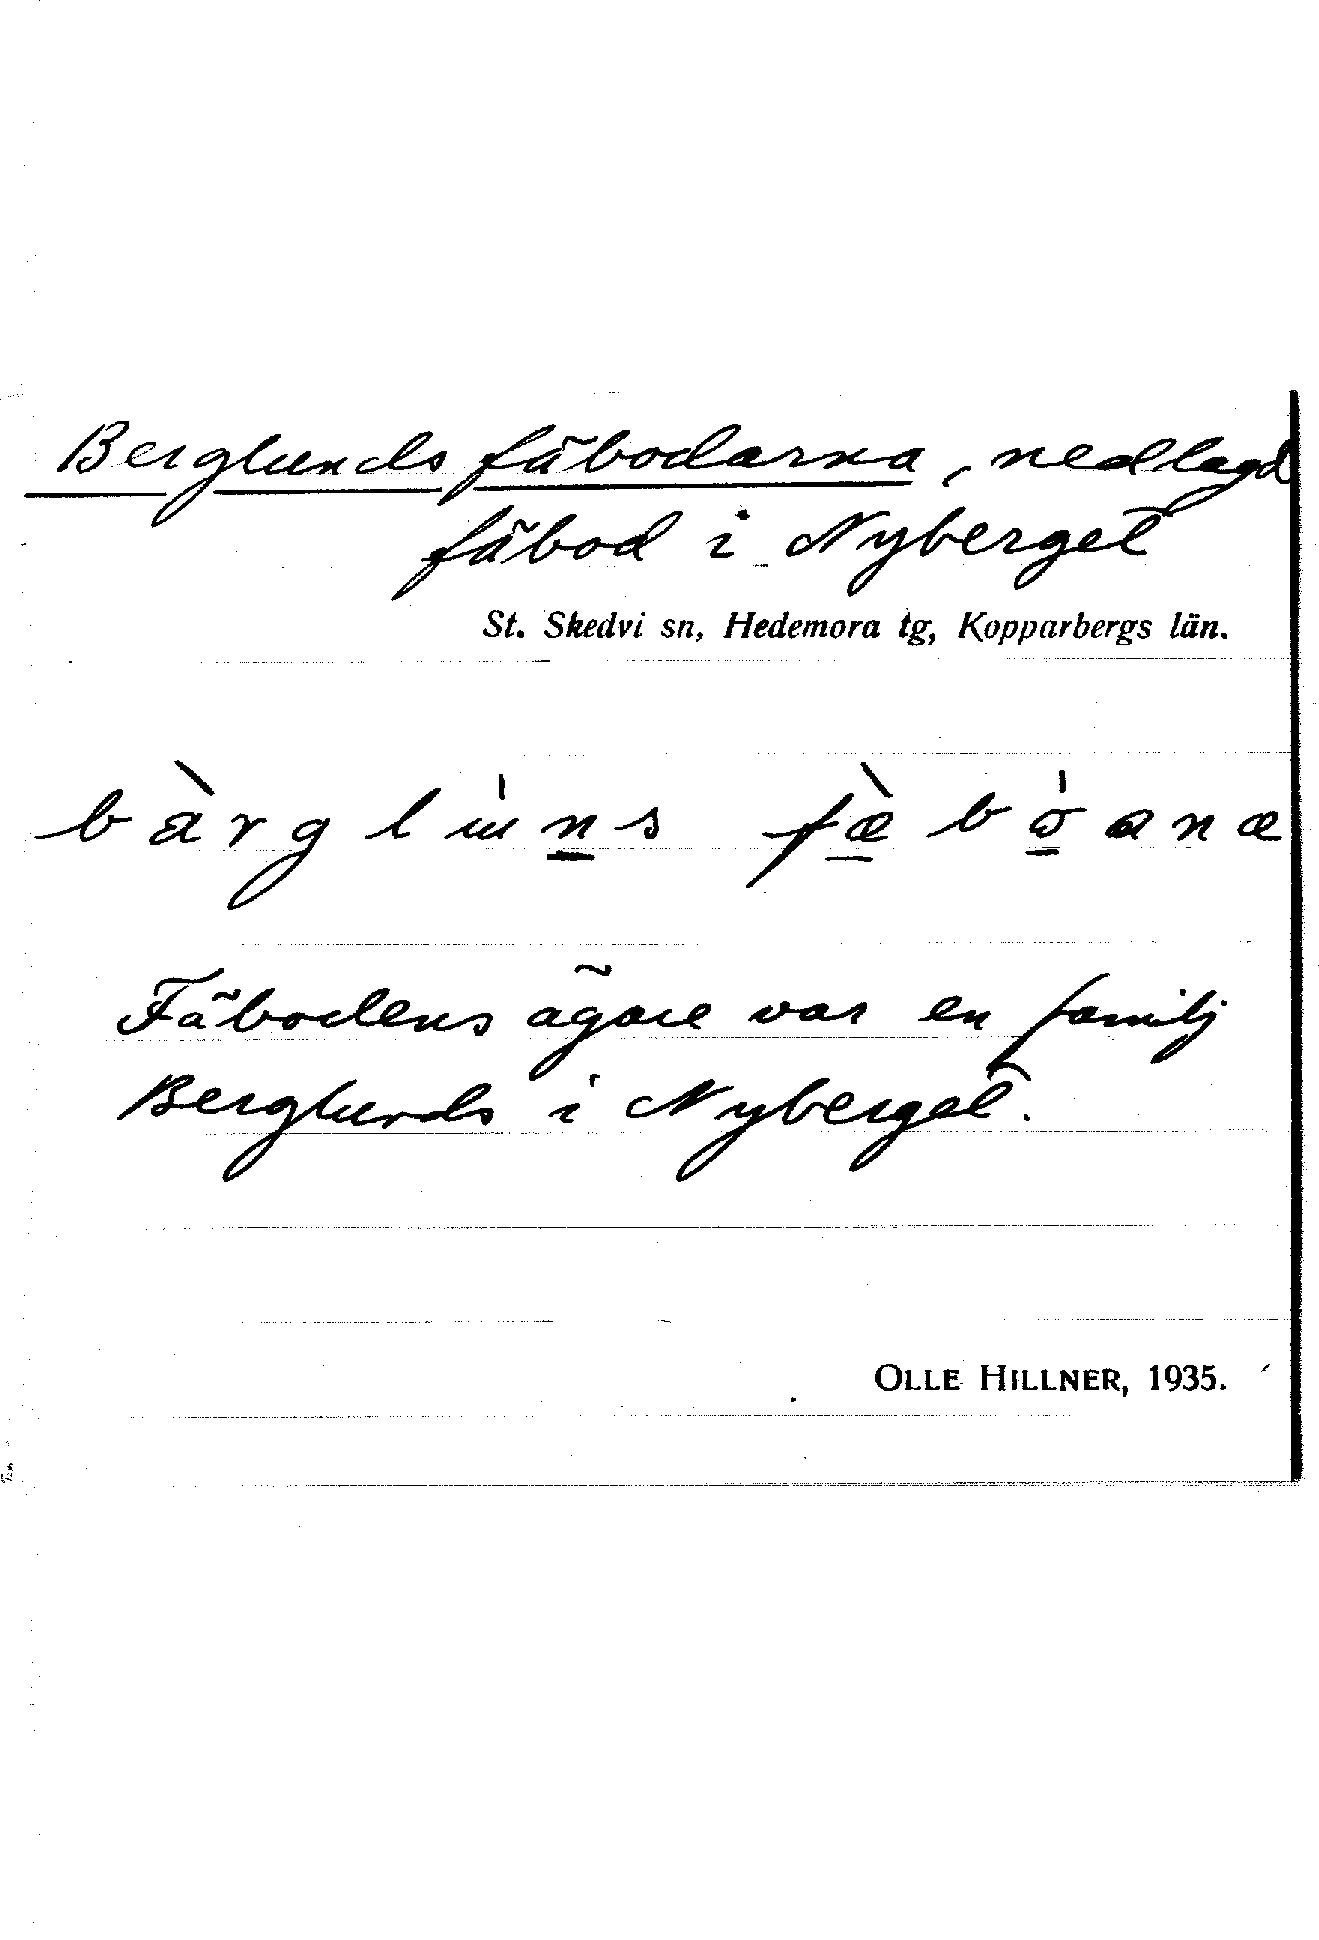 Berglunds fäbodarna, nedlagd
fäbod i Nyberget
St. Skedvi sn, Hedemora tg, Kopparbergs län.
Fäbodens ägare var en familj
Berglunds i Nyberget.
OLLE HILLNER, 1935.